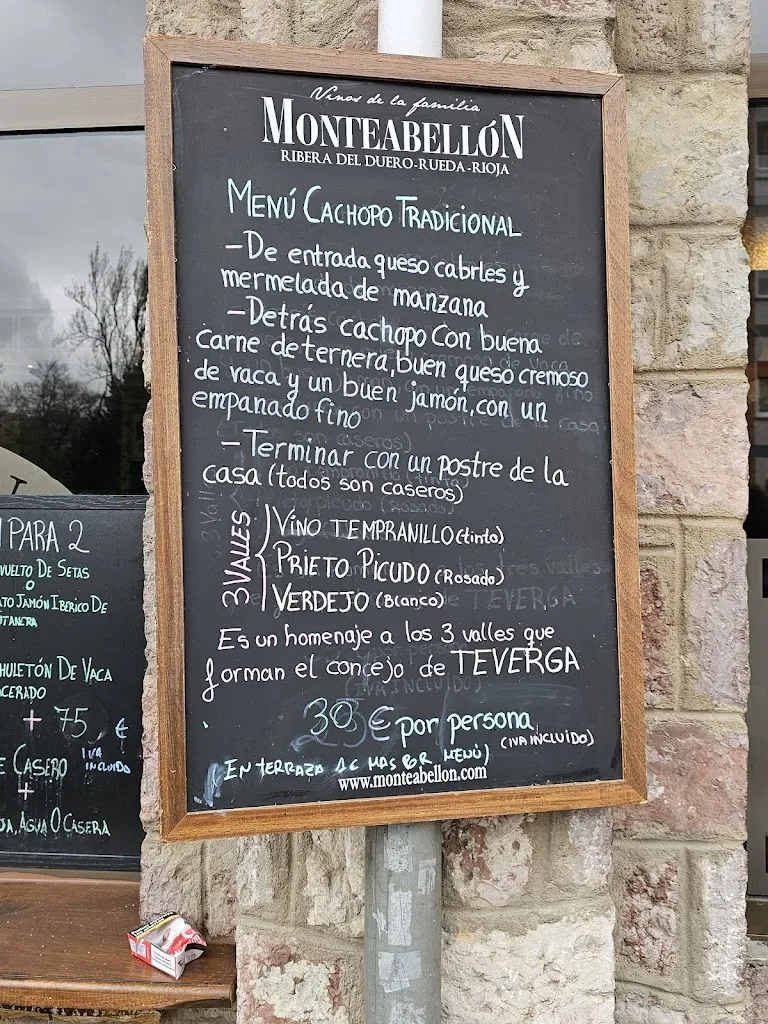 Vinos de la familia
MONTEABELLÓN
RIBERA DEL DUERO-RUEDA-RIOJA
MENÚ CACHOPO TRADICIONAL
-De entrada queso cabrles y
mermelada de manzana
-Detrás cachopo con buena
carne de ternera, buen queso cremoso
de vaca y un buen jamón, con un
empanado fino
-Terminar con un postre de la
casa (todos son caseros)
3 VALLES
VINO TEMPRANILLO (tinto)
PRIETO PICUDO (Rosado)
VERDEJO (Blanco)
Es un homenaje a los 3 valles que
forman el concejo de TEVERGA
30 € por persona
(IVA INCLUIDO)
EN TERRAZA 1€ MAS POR MENÚ)
www.monteabellon.com
PARA 2
VUELTO DE SETAS
O
TO JAMÓN IBERICO DE
HULETÓN DE VACA
CERADO
+ 75 €
IVA
INCLUIDO
CASERO
+
JA, AGUA O CASERA